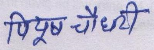 पियूष चौधरी